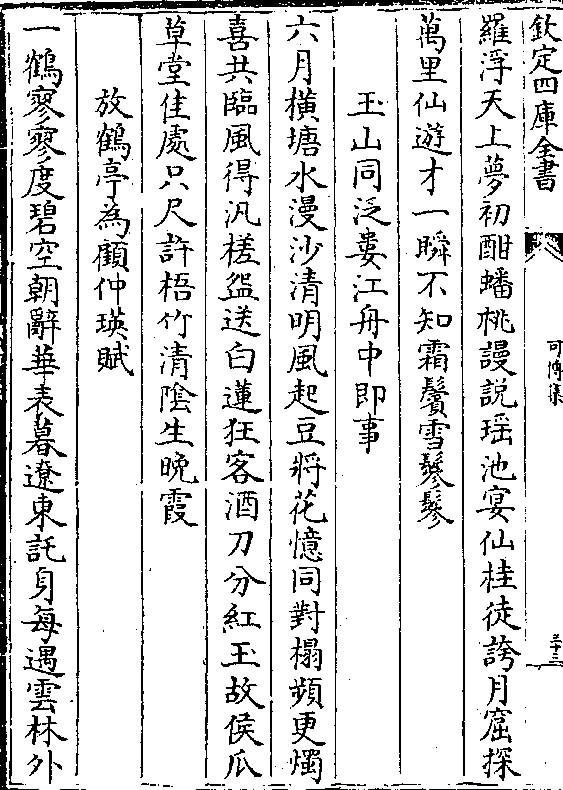 欽定四庫全書
可傳集
三十三
羅浮天上夢初酣蟠桃謾說瑶池宴仙桂徒誇月窟探
萬里仙遊才一瞬不知霜鬢雪鬖鬖
玉山同泛婁江舟中即事
六月橫塘水漫沙清明風起豆將花憶同對榻頻更燭
喜共臨風得汎槎盌送白蓮狂客酒刀分紅玉故侯瓜
草堂住處只尺許梧竹清陰生晚霞
放鶴亭為顧仲瑛賦
一鶴寥寥度碧空朝辭華表暮遼東託身每遇雲林外